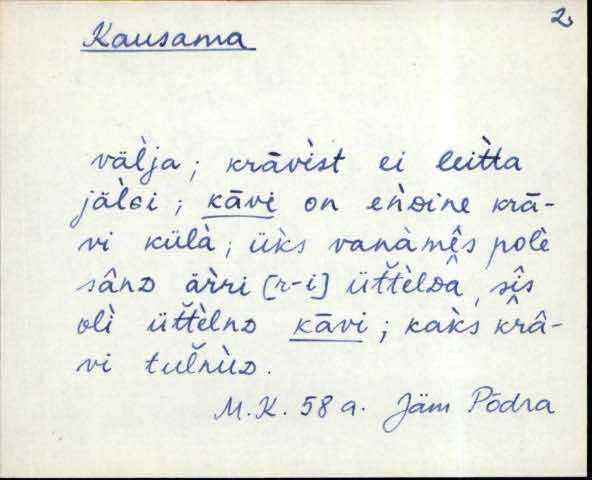 2.
Kausama
väl̀ja; krāvist ei leit̀ta
jäl̀ɢi; kāvi on eǹᴅine krā-
vi külà; ük̀s vanàmês polè
sânᴅ är̀ri [r-i] üt̆tèlᴅâ, sîs
olì üt̆tèlnᴅ kāvi; kak̀s krâ-
vi tul̆nùᴅ.
M.K. 58 a. Jäm Põdra